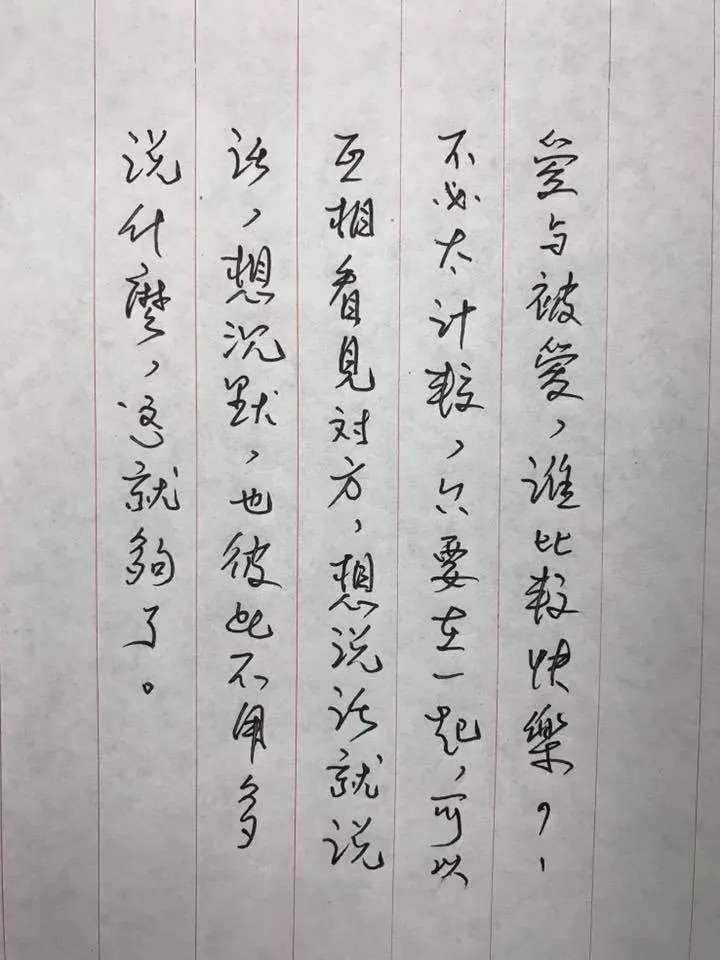 愛与被愛，谁比較快樂，
不必太计較，只要在一起，可以
互相看見对方，想说话就说
话，想沉默，也彼此不用多
说什麼，这就夠了。